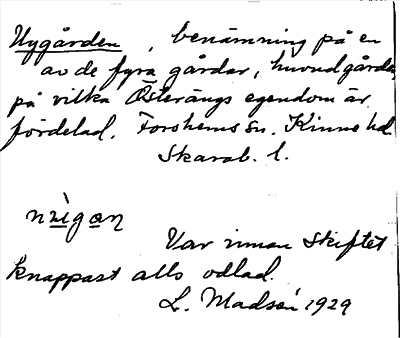 Nygården, benämning på en
av de fyra gårdar, huvudgårdar,
på vilka Österängs egendom är
fördelad. Forshems sn. Kinne hd.
Skarab. l.
nýgan
Var innan skiftet
knappast alls odlad.
L. Madsén 1929